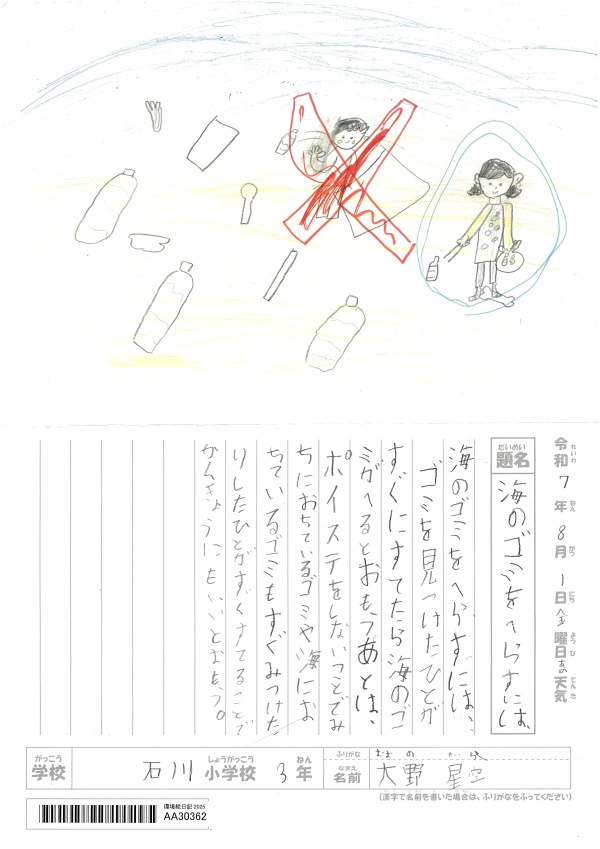 令和7年8月1日(金曜日)の天気
題名 海のゴミをへらすには、
海のゴミをへらすには、
ゴミを見つけたひとが
すぐにすてたら海のゴ
ミがへるとおもうあとは、
ポイステをしないことでみ
ちにおちているゴミや海にお
ちているゴミもすぐみつけた
りしたひとがすぐすてることで
かんきょうにもいいとおもう。
がっこう しょうがっこう ねん ふりがな
学校 石川 小学校 3年 名前 大野 星空
(漢字で名前を書いた場合は、ふりがなをふってください)
環境絵日記 2025
AA30362